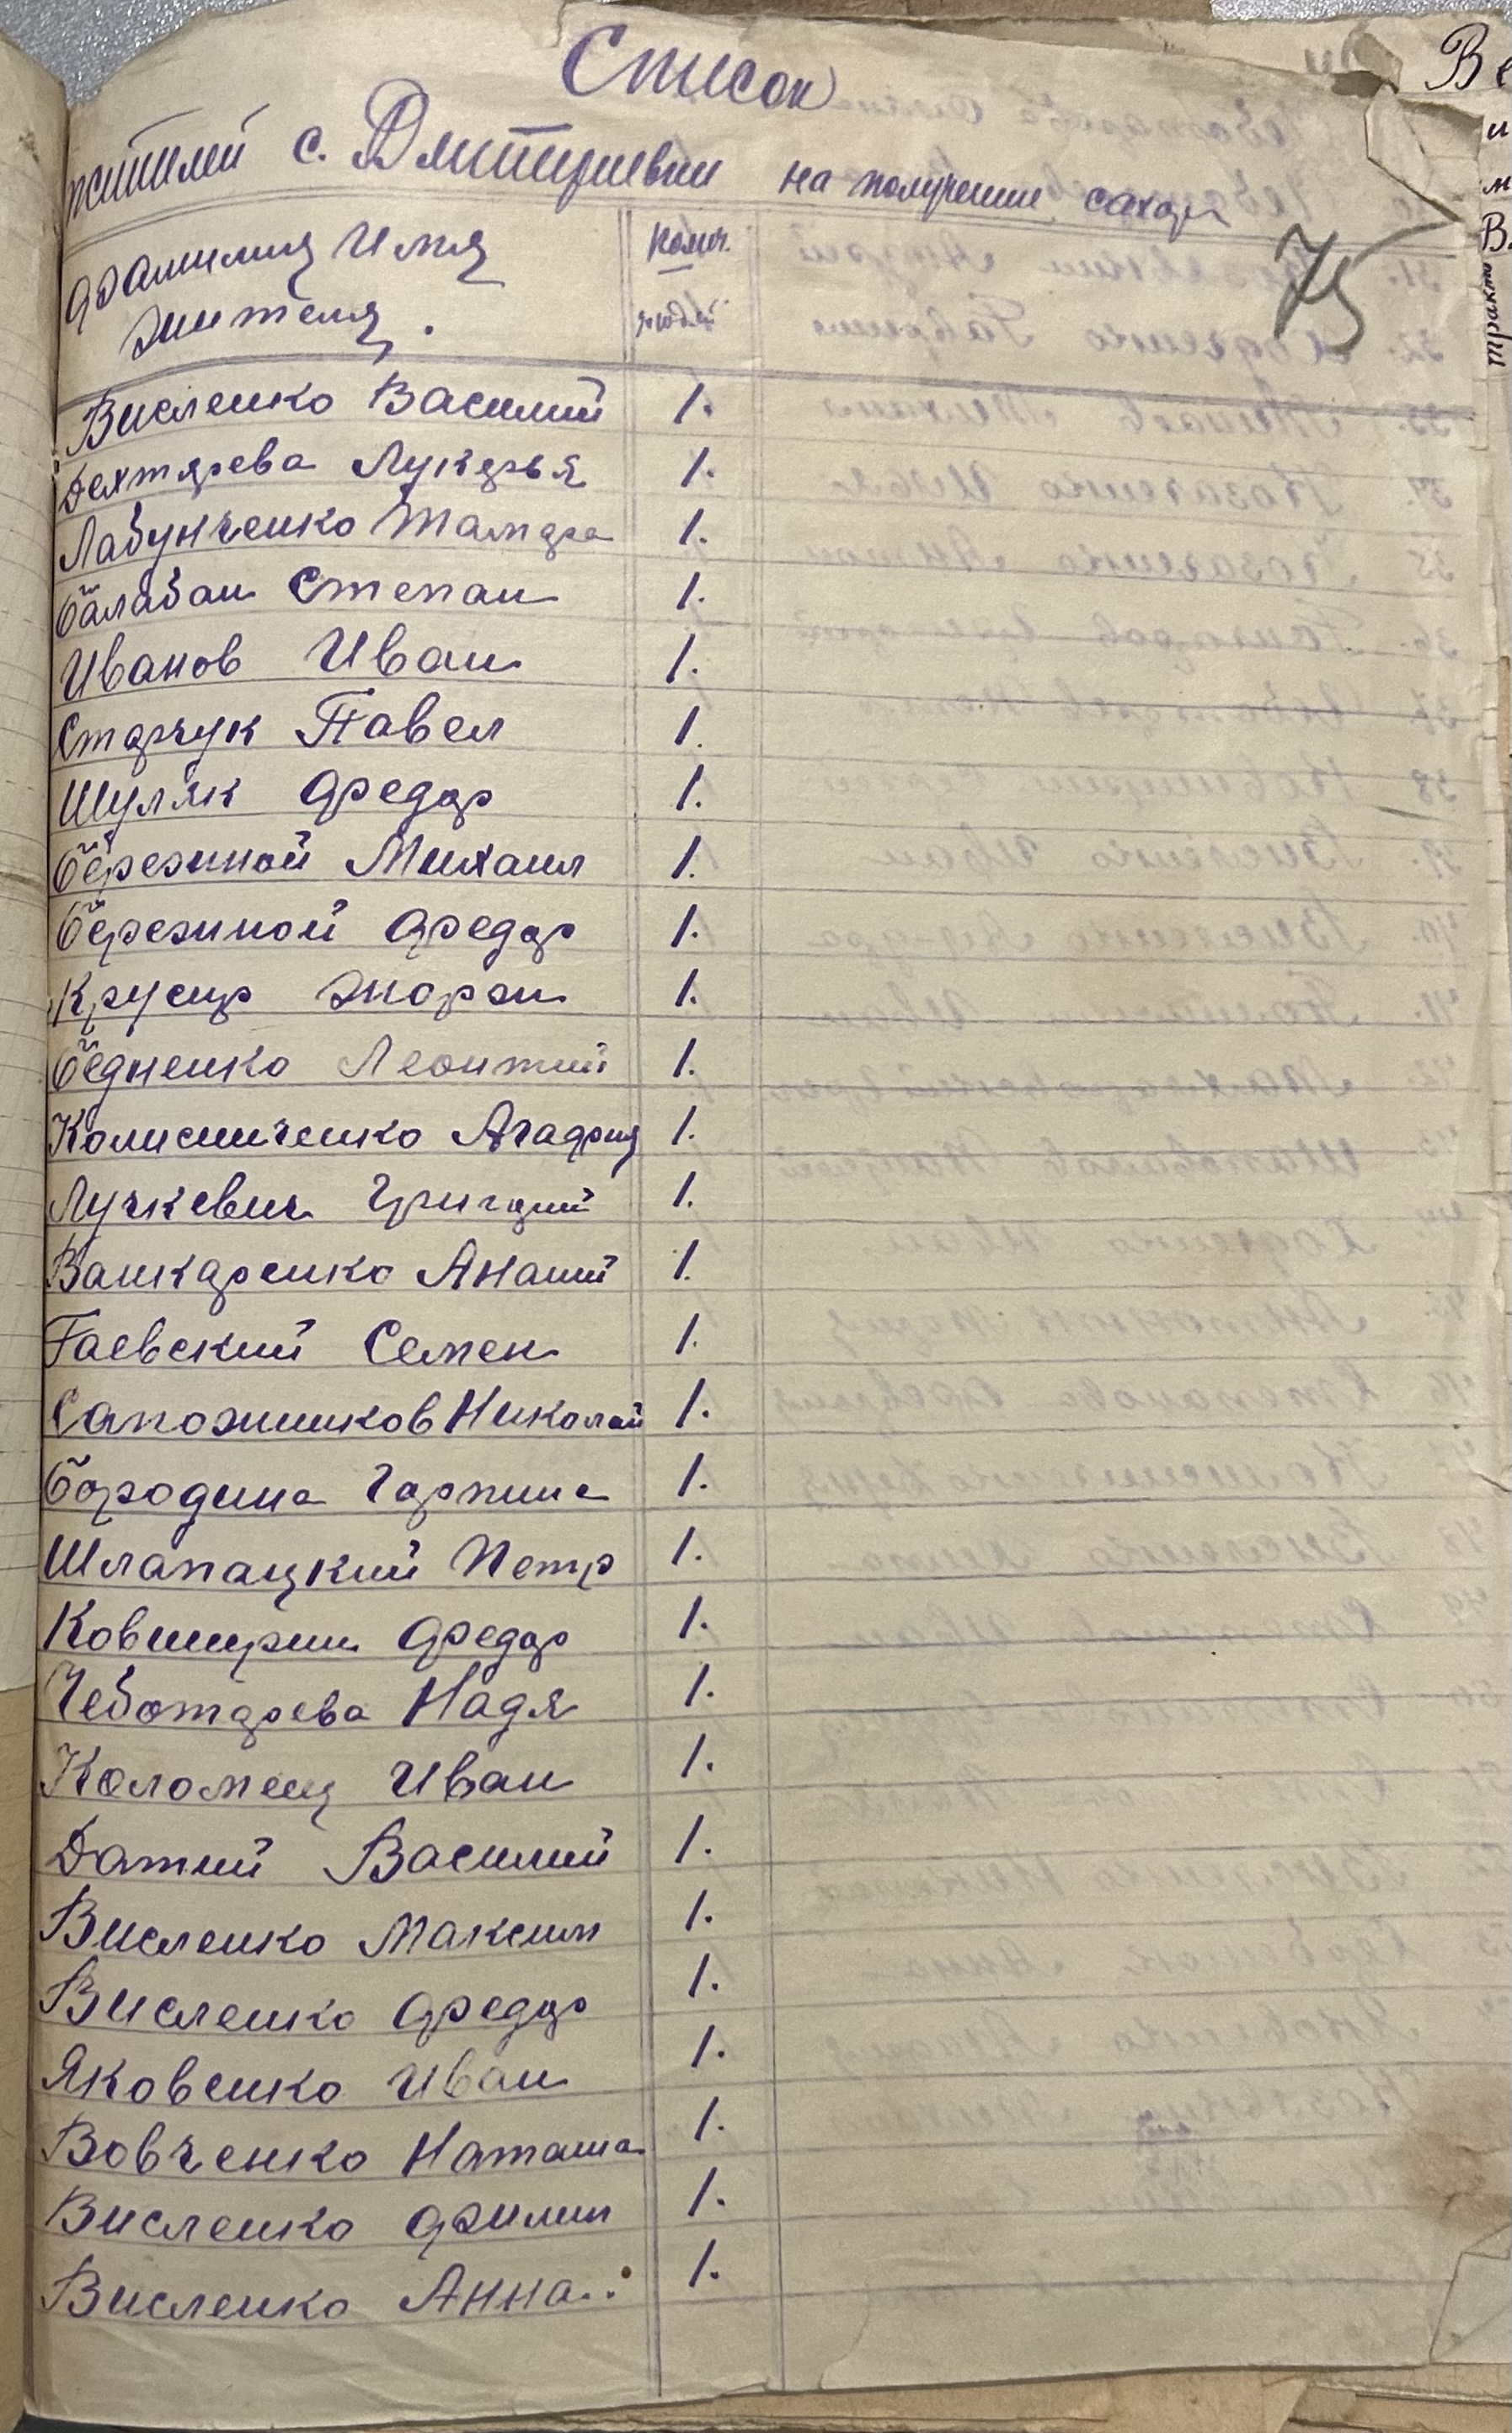 Список
жителей с. Дмитриевки на получение сахара
75
Фамилия Имя колич.
жителя. людей
Висленко Василий 1.
Дехтярева Лукерья 1.
Лабунченко Тамара 1.
Балабан Степан 1.
Иванов Иван 1.
Старчук Павел 1.
Шуляк Федор 1.
Бережной Михаил 1.
Бережной Федор 1.
Крусир Жорж 1.
Бедненко Леонтий 1.
Колисниченко Агафия 1.
Лучкевич Григорий 1.
Вашкаренко Ананий 1.
Гаевский Семен 1.
Сапожников Николай 1.
Бородина Горпина 1.
Шлапацкий Петр 1.
Ковширин Федор 1.
Чеботарева Надя 1.
Коломец Иван 1.
Датий Василий 1.
Висленко Максим 1.
Висленко Федор 1.
Яковенко Иван 1.
Вовченко Наташа 1.
Висленко Филип 1.
Висленко Анна. 1.